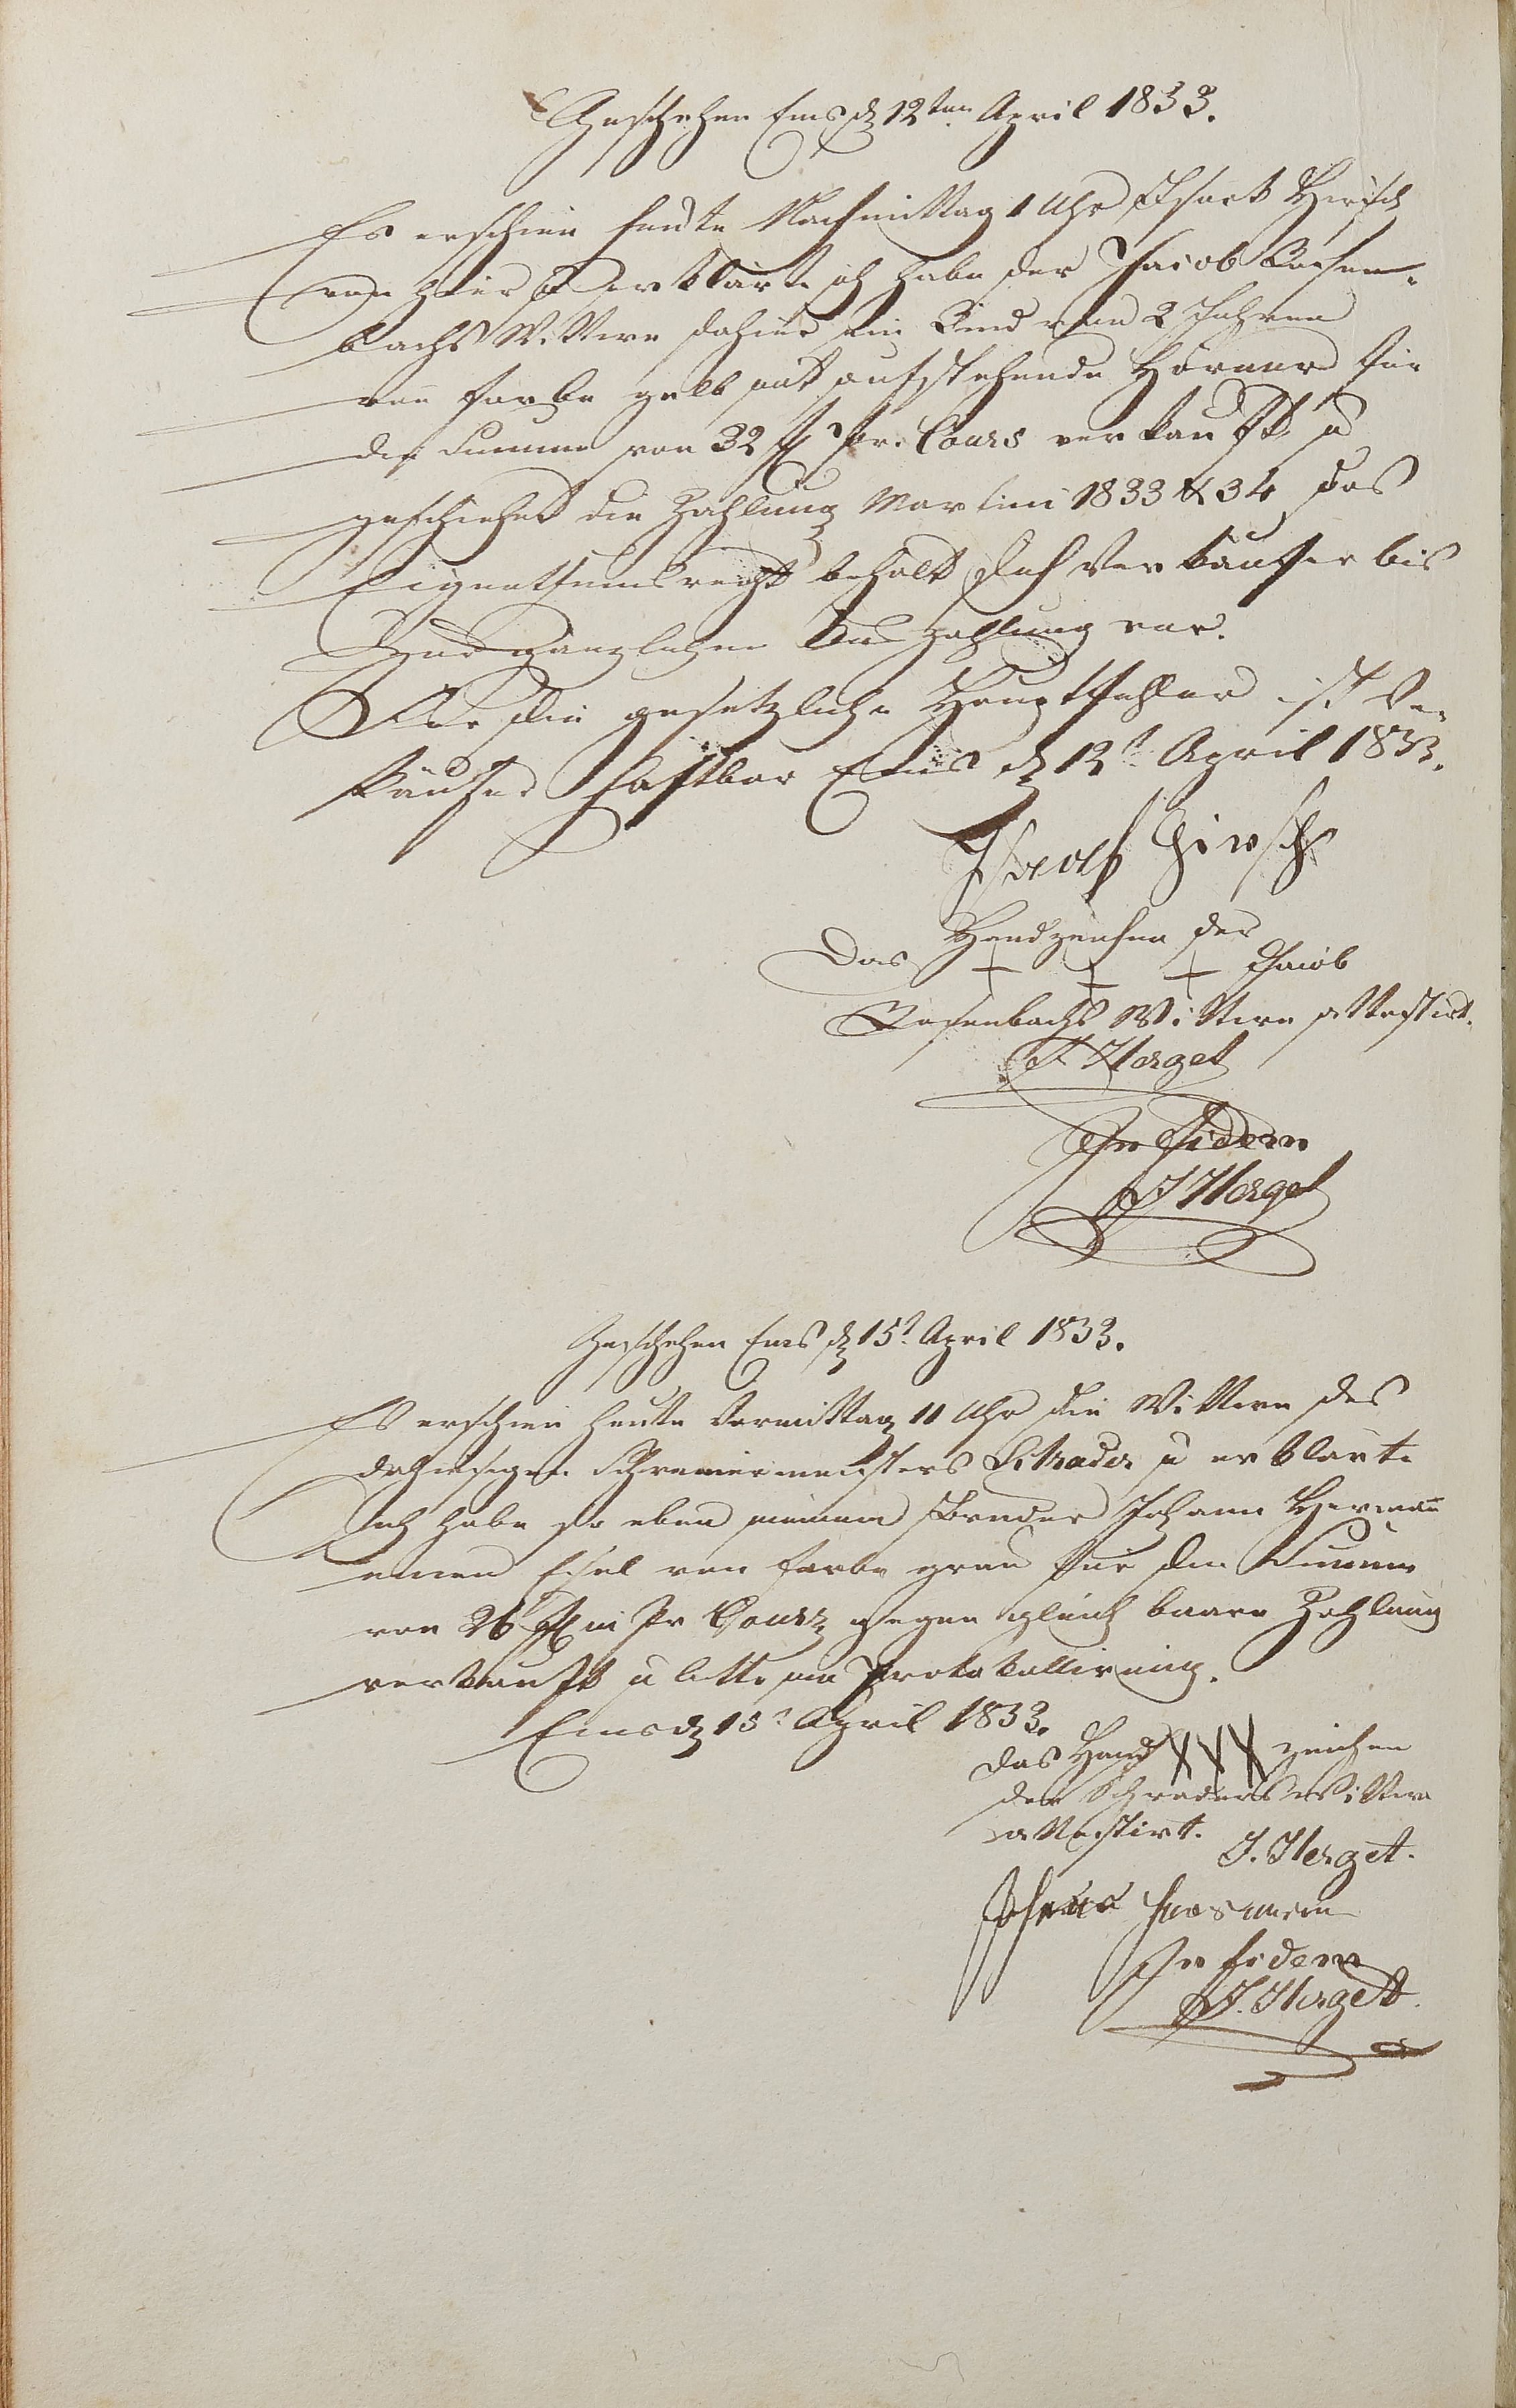 Geschehen Ems d 12ten April 1833.
Es erschien heute Nachmittag 1 Uhr Isack Hirsch
von hier u erklärte ich habe der Jacob Rosen-
bachs Wittwe dahier ein Rind von 2 Jahren
von Farbe gelb mit aufstehende Hörner für
die Summe von 32 f Pr. Cours verkauft u
geschiehet die Zahlung Martini 1833 & 34 das
Eigenthumsrecht behält sich Verkäufer bis
zur gänzlichen Auszahlung vor.
Für die gesetzliche Hauptfehler ist Ver-
käufer haftbar Ems d 12t April 1833.
Hirsch
Handzeichen der
Das + + + Jacob
Rosenbachs Wittwe attestirt.
J Herget
In fidem
J Herget
Geschehen Ems d 15t April 1833.
Es erschien heute Vormittag 11 Uhr die Wittwe des
dahiesigen Schreinermeisters Schrader u erklärte
Ich habe so eben meinem Bruder Johann Hermann
einen Esel von Farbe grau für die Summe
von 26 f in Pr Cours gegen gleich baare Zahlung
verkauft u bitte um Protokollirung.
Ems d 15t April 1833.
Das Hand XXX zeichen
der Schraders Wittwe
attestirt. J. Herget.
Johann
In fidem
J. Herget.